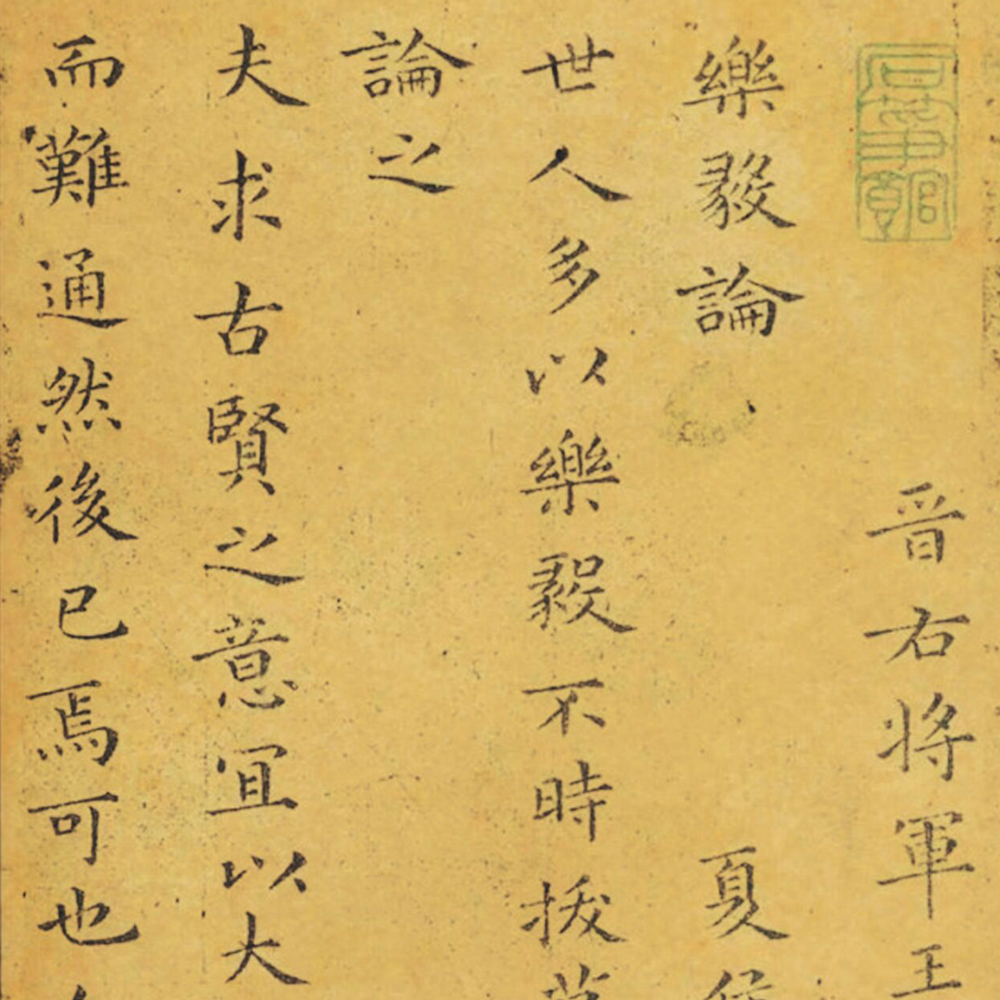 晋右将軍王
樂毅論 夏侯
世人多以樂毅不時拔莒
論之
夫求古賢之意宜以大
而難通然後已焉可也